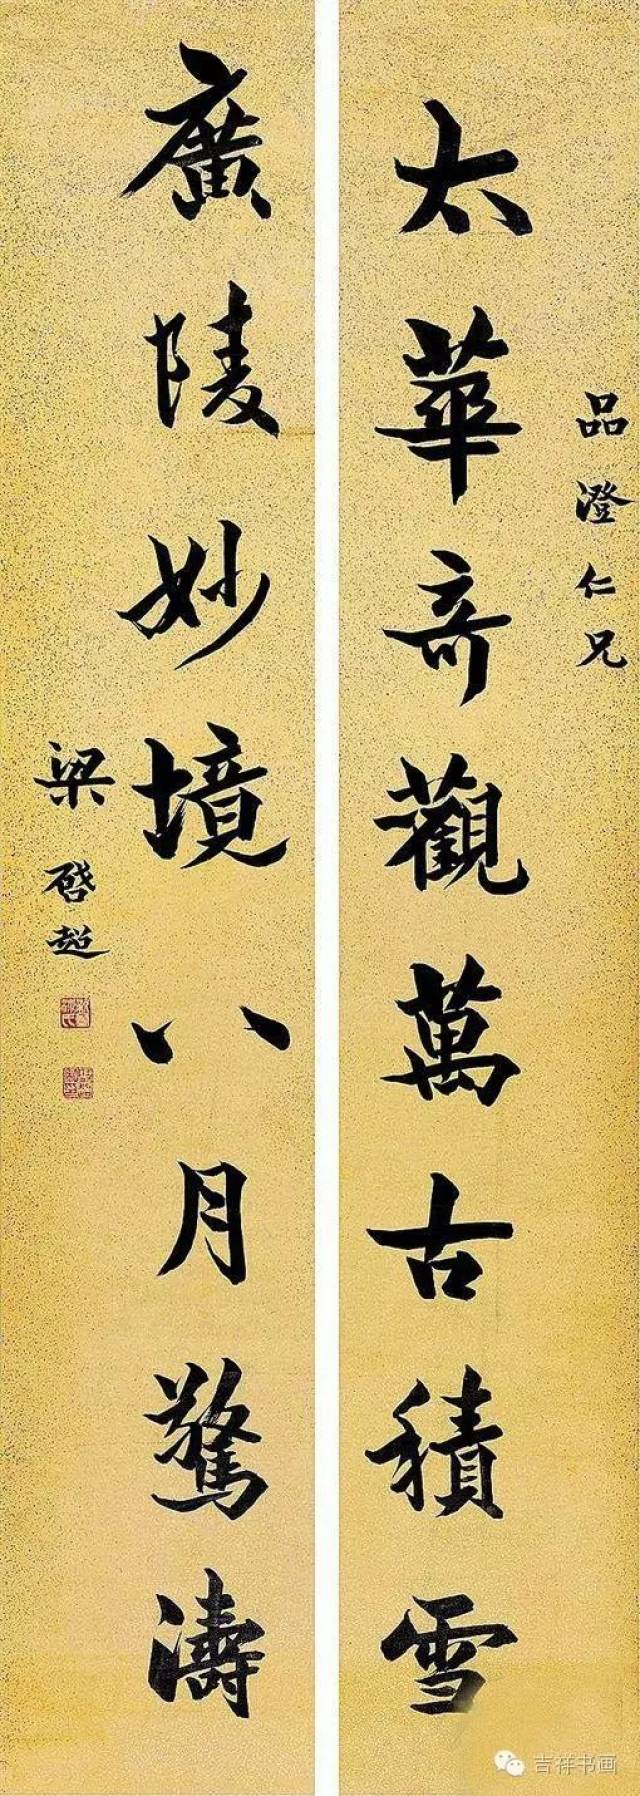 品澄仁兄
太華奇觀萬古積雪
廣陵妙境八月驚濤
梁啓超
吉祥书画